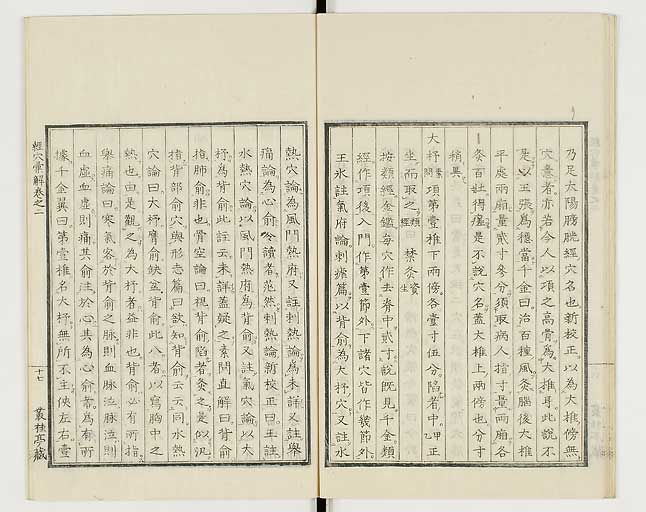 乃足太陽膀胱經穴名也新校正以為大椎傍無
穴意者亦若今人以項之高骨為大椎耳此說不
是以王張為穩當千金曰治百種風灸腦後大椎
平處兩廂量貳寸參分須取病人指寸量兩廂各
灸百壯得瘥是不說穴名蓋大椎上兩傍也分寸
稍異
大杼素問項第壹椎下兩傍各壹寸伍分陷者中甲乙正
坐而取之類經禁灸資生
按類經金鑑每穴作去脊中貳寸說既見金類
經作項後入門作第壹節外下諸穴皆作幾節外
王氷註氣府論刺瘧篇以背俞為大杼穴又註水
熱穴論為風門熱府又註刺熱論為未詳又註舉
痛論為心俞令讀者茫然刺熱論新校正曰王註
水熱穴論以風門熱府為背俞又註氣穴論以大
杼為背俞此註云未詳蓋疑之素問直解曰背俞
指肺俞非也骨空論曰視背俞陷者灸之是似汎
指背部俞穴與形志篇曰欲知背俞云云同水熱
穴論曰大杼膺俞缺盆背俞此八者以寫胸中之
熱也由是觀之為大杼者益非也背俞必有所指
舉痛論曰寒氣客於背俞之脉則血脉泣脉泣則
血虛血虛則痛其俞注於心其為心俞者為有所
據千金翼曰第壹椎名大杼無所不主俠左右壹
經穴彙解卷之二
十七
叢桂亭藏